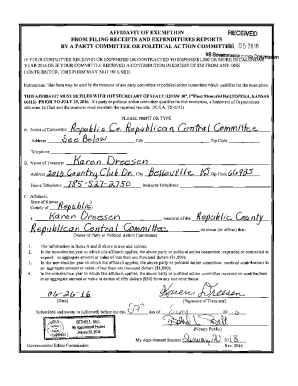 AFFIDAVIT OF EXEMPTION
FROM FILING RECEIPTS AND EXPENDITURES REPORTS
BY A PARTY COMMITTEE OR POLITICAL ACTION COMMITTEE
RECEIVED
05 2016
KS Governmental Ethics Commission
IF YOUR COMMITTEE RECEIVED OR EXPENDED OR CONTRACTED TO EXPEND $1,000 OR MORE IN CALENDAR
YEAR 2016 OR IF YOUR COMMITTEE RECEIVED A CONTRIBUTION IN EXCESS OF $50 FROM ANY ONE
CONTRIBUTOR, THIS FORM MAY NOT BE USED.
Instructions: This form may be used by the treasurer of any party committee or political action committee which qualifies for the exemption.
THIS AFFIDAVIT MUST BE FILED WITH THE SECRETARY OF STATE (120 SW 10th, 1st Floor Memorial Hall) TOPEKA, KANSAS
66612) PRIOR TO JULY 25, 2016. If a party or political action committee qualifies for this exemption, a Statement of Organization
must be filed and the treasurer must maintain the required records. (K.S.A. 25-4145)
PLEASE PRINT OR TYPE
A. Name of Committee: Republic Co. Republican Central Committee
Address See Below City Zip Code
Telephone
B. Name of Treasurer Karen Dreesen
Address 2015 Country Club Dr. City Belleville KS Zip Code 66935
Home Telephone 785-527-2750 Business Telephone
C. Affidavit:
State of Kansas
County of Republic
I, Karen Dreesen, treasurer of the Republic County
Republican Central Committee, do swear (or affirm) that:
(Name of Party or Political Action Committee)
1. The information in Items A and B above is true and correct.
2. In the calendar year to which this affidavit applies, the above party or political action committee expended or contracted to
expend, an aggregate amount or value of less than one thousand dollars ($1,000);
3. In the calendar year to which this affidavit applies, the above party or political action committee received contributions in
an aggregate amount or value of less than one thousand dollars ($1,000);
4. In the calendar year to which this affidavit applies, the above party or political action committee received no contributions
in excess of fifty dollars ($50) from any one contributor.
06-26-16
(Date)
Karen Dreesen
(Signature of Treasurer)
Subscribed and sworn to (affirmed) before me this day of
(Notary Public)
My Appointment Expires
Governmental Ethics Commission
Rev. 2016